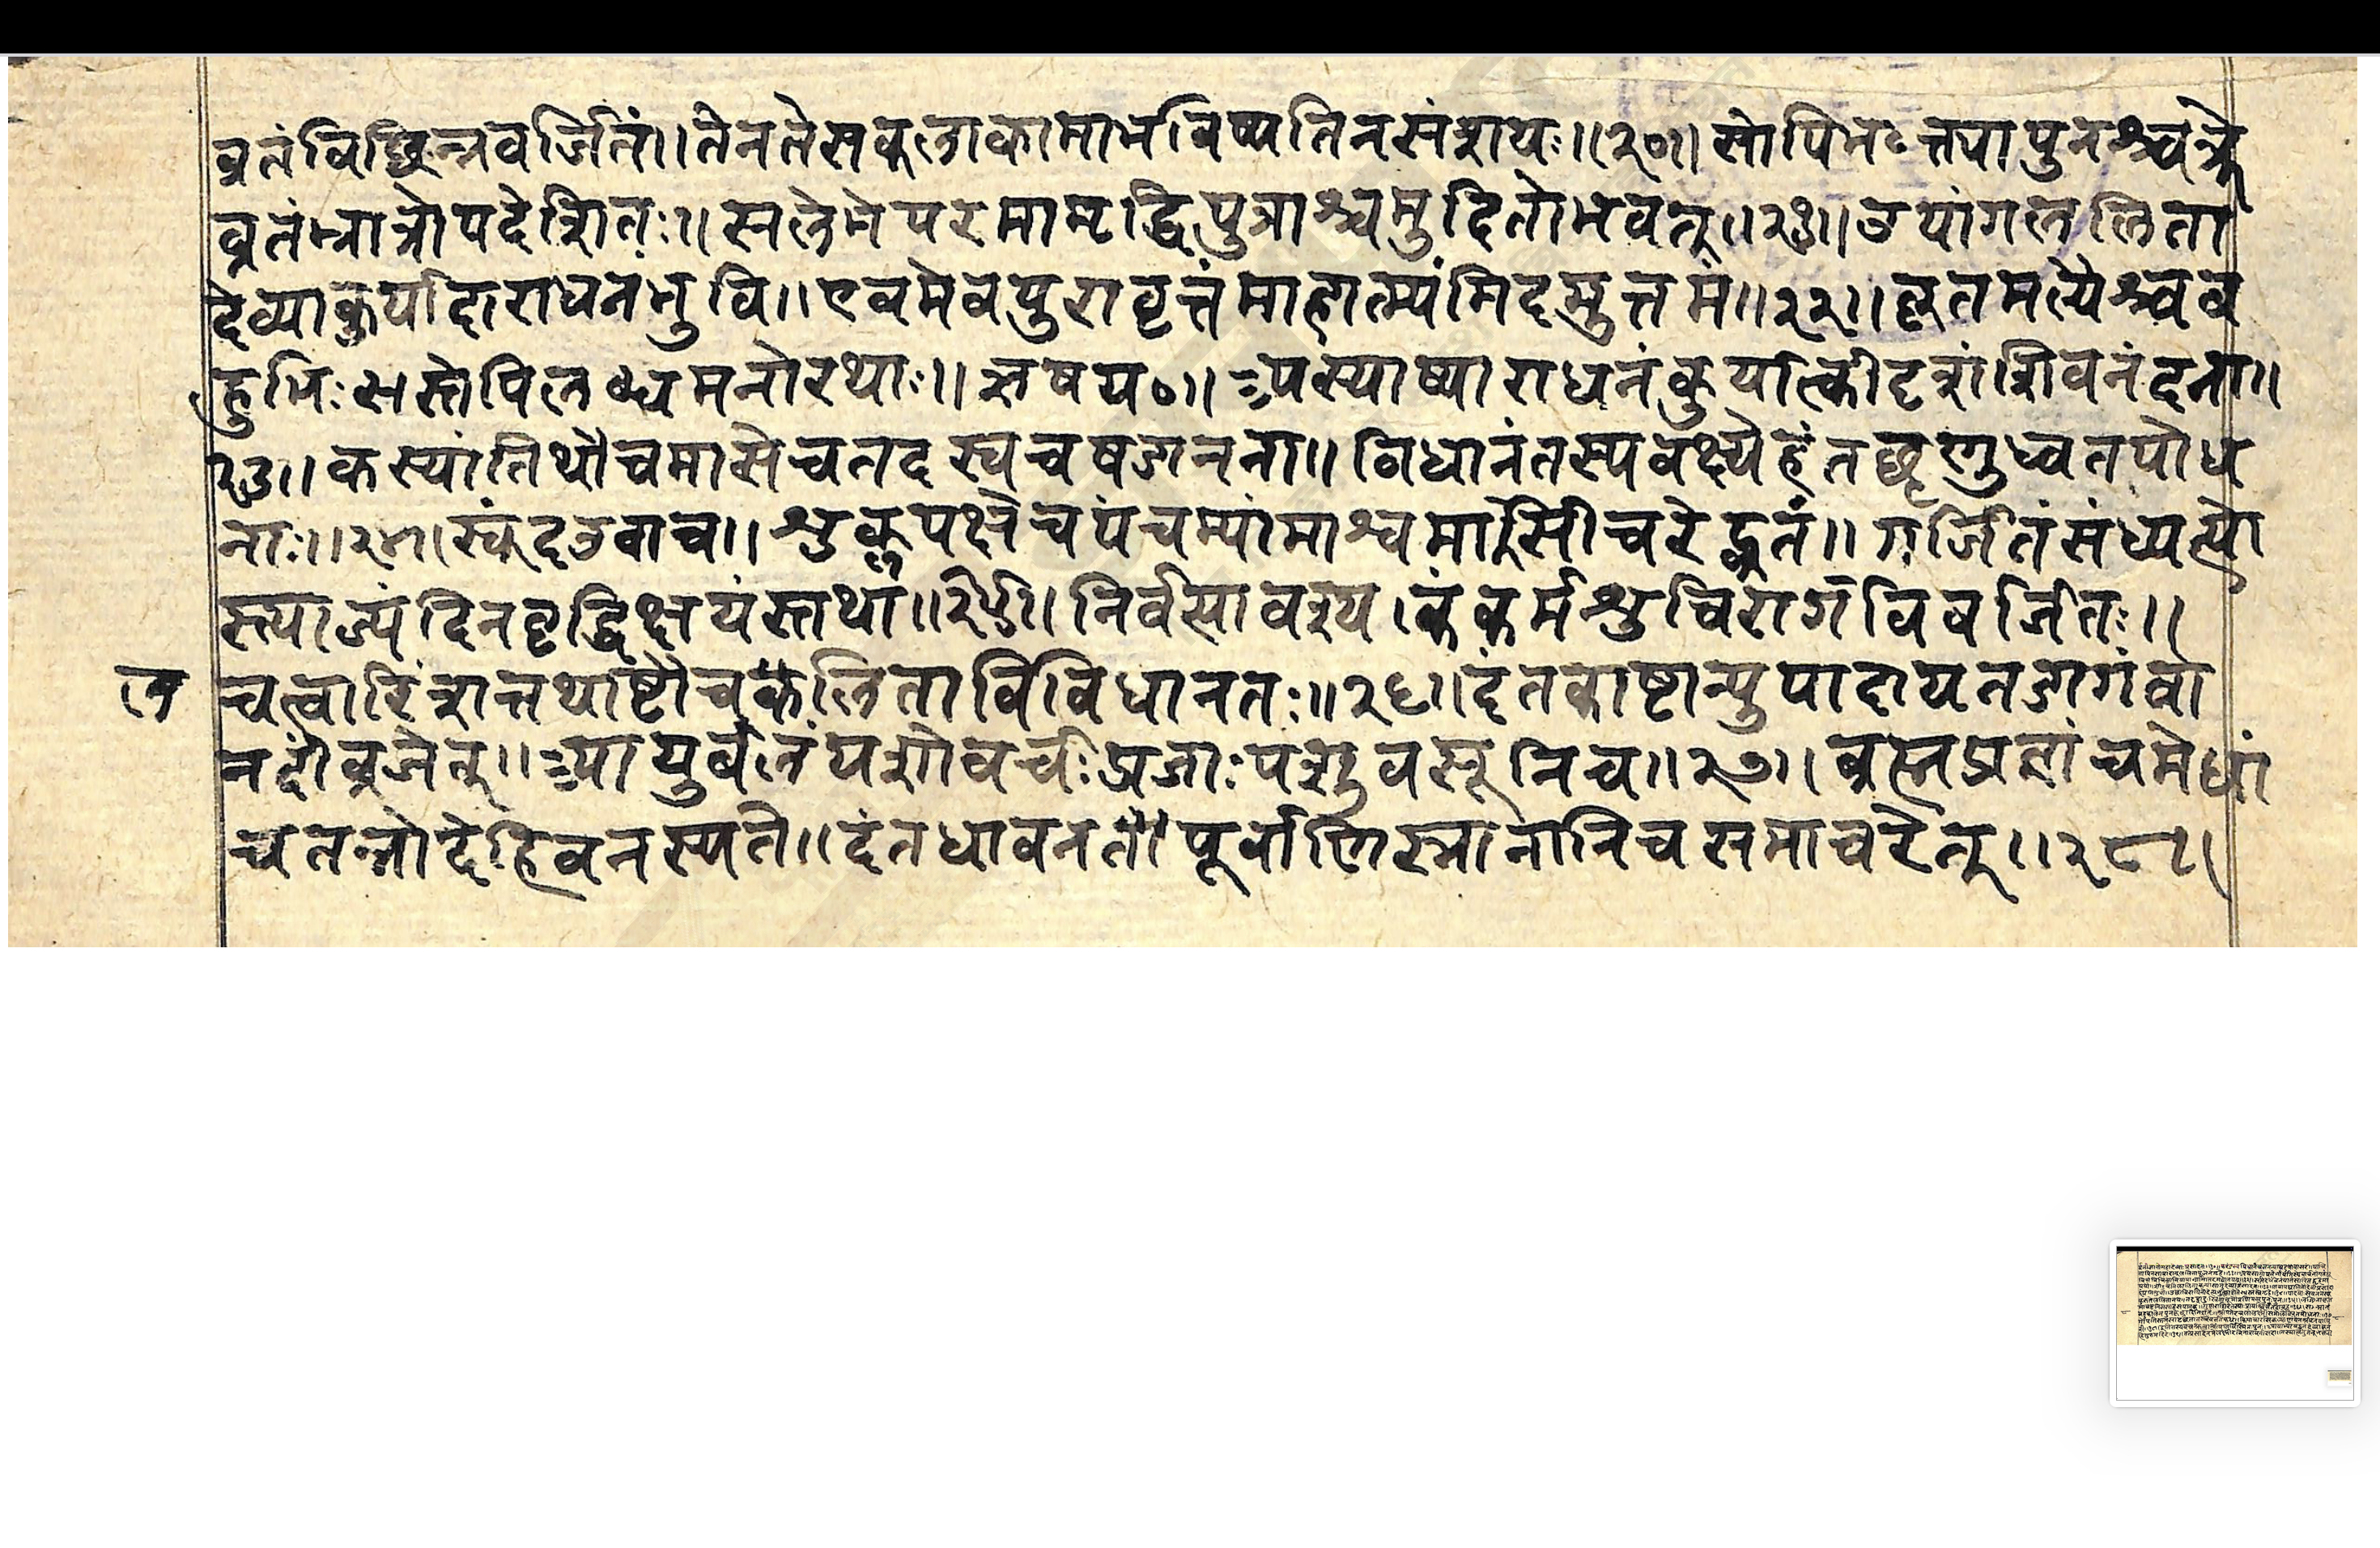 व्रतंविछिन्नवर्जितं॥तेनतेसकलाकामाभविष्यतिनसंशयः॥२०॥सोपिभक्त्यापुनश्चक्रे
व्रतंभ्रात्रोपदेशितः॥सलेभेपरमामृद्धिपुत्राश्चमुदितोभवत्॥२१॥उपांगललिता
देव्याकुर्यादाराधनंभुवि॥एवमेवपुरावृत्तंमाहात्म्यंमिदमुत्तमं॥२२॥कृतमर्त्यैश्चव
हुभिःसर्तोपिलब्धमनोरथाः॥रुषय०॥अस्याप्याराधनंकुर्यात्कीदृशंशिवनंदना॥
२३॥कस्यांतिथौचमासेचतदस्वचषडानना॥विधानंतस्यवक्ष्येहंतछृणुध्वतपोध
नाः॥२४॥स्कंदउवाच॥शुक्लपक्षेचपंचम्यांमाश्वमासिचरेद्व्रतं॥गर्जितंसंध्ययो
स्त्याज्यंदिनवृद्धिक्षयंस्तथा॥२५॥निर्वत्यावश्यकंकर्मशुचिरागविवर्जितः॥
ल चत्वारिंशत्तथाष्टौचकेलितावैविधानतः॥२६॥दंतकाष्टान्युपादायतडागंवा
नदींव्रजेत्॥आयुर्बलंयशोवर्चःप्रजाःपशुवसूनिच॥२७॥ब्रह्मप्रज्ञांचमेधां
चतन्नोदेहिवनस्पते॥दंतधावनतोपूर्वाणिस्नानानिचसमाचरेत्॥२८॥